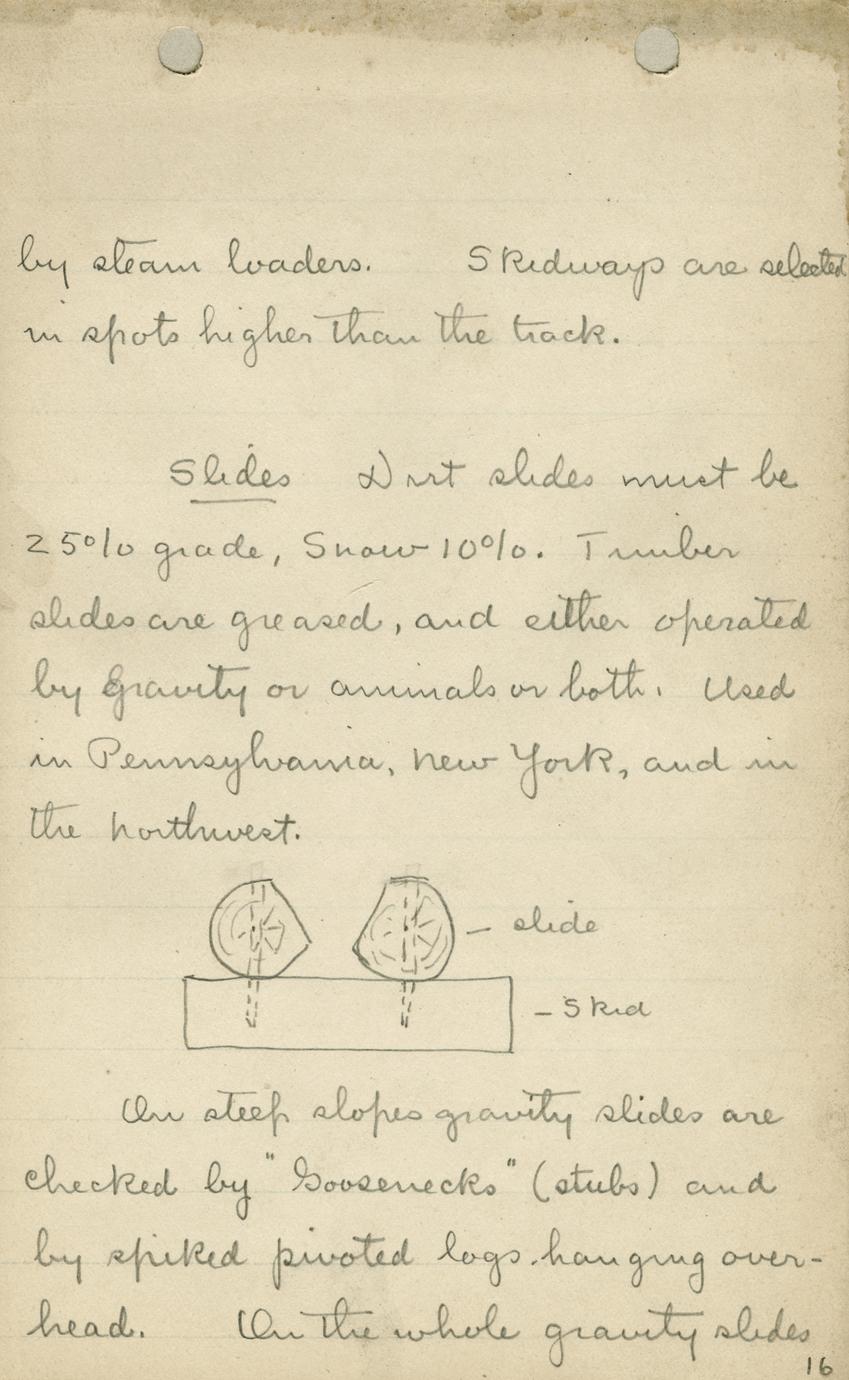 by steam loaders. Skidways are selected
in spots higher than the track.
Slides Dirt slides must be
25% grade, Snow 10%. Timber
slides are greased, and either operated
by Gravity or animals or both. Used
in Pennsylvania, New York, and in
the northwest.
- slide
- Skid
On steep slopes gravity slides are
checked by "Goosenecks" (stubs) and
by spiked pivoted logs hanging over-
head. On the whole gravity slides
16